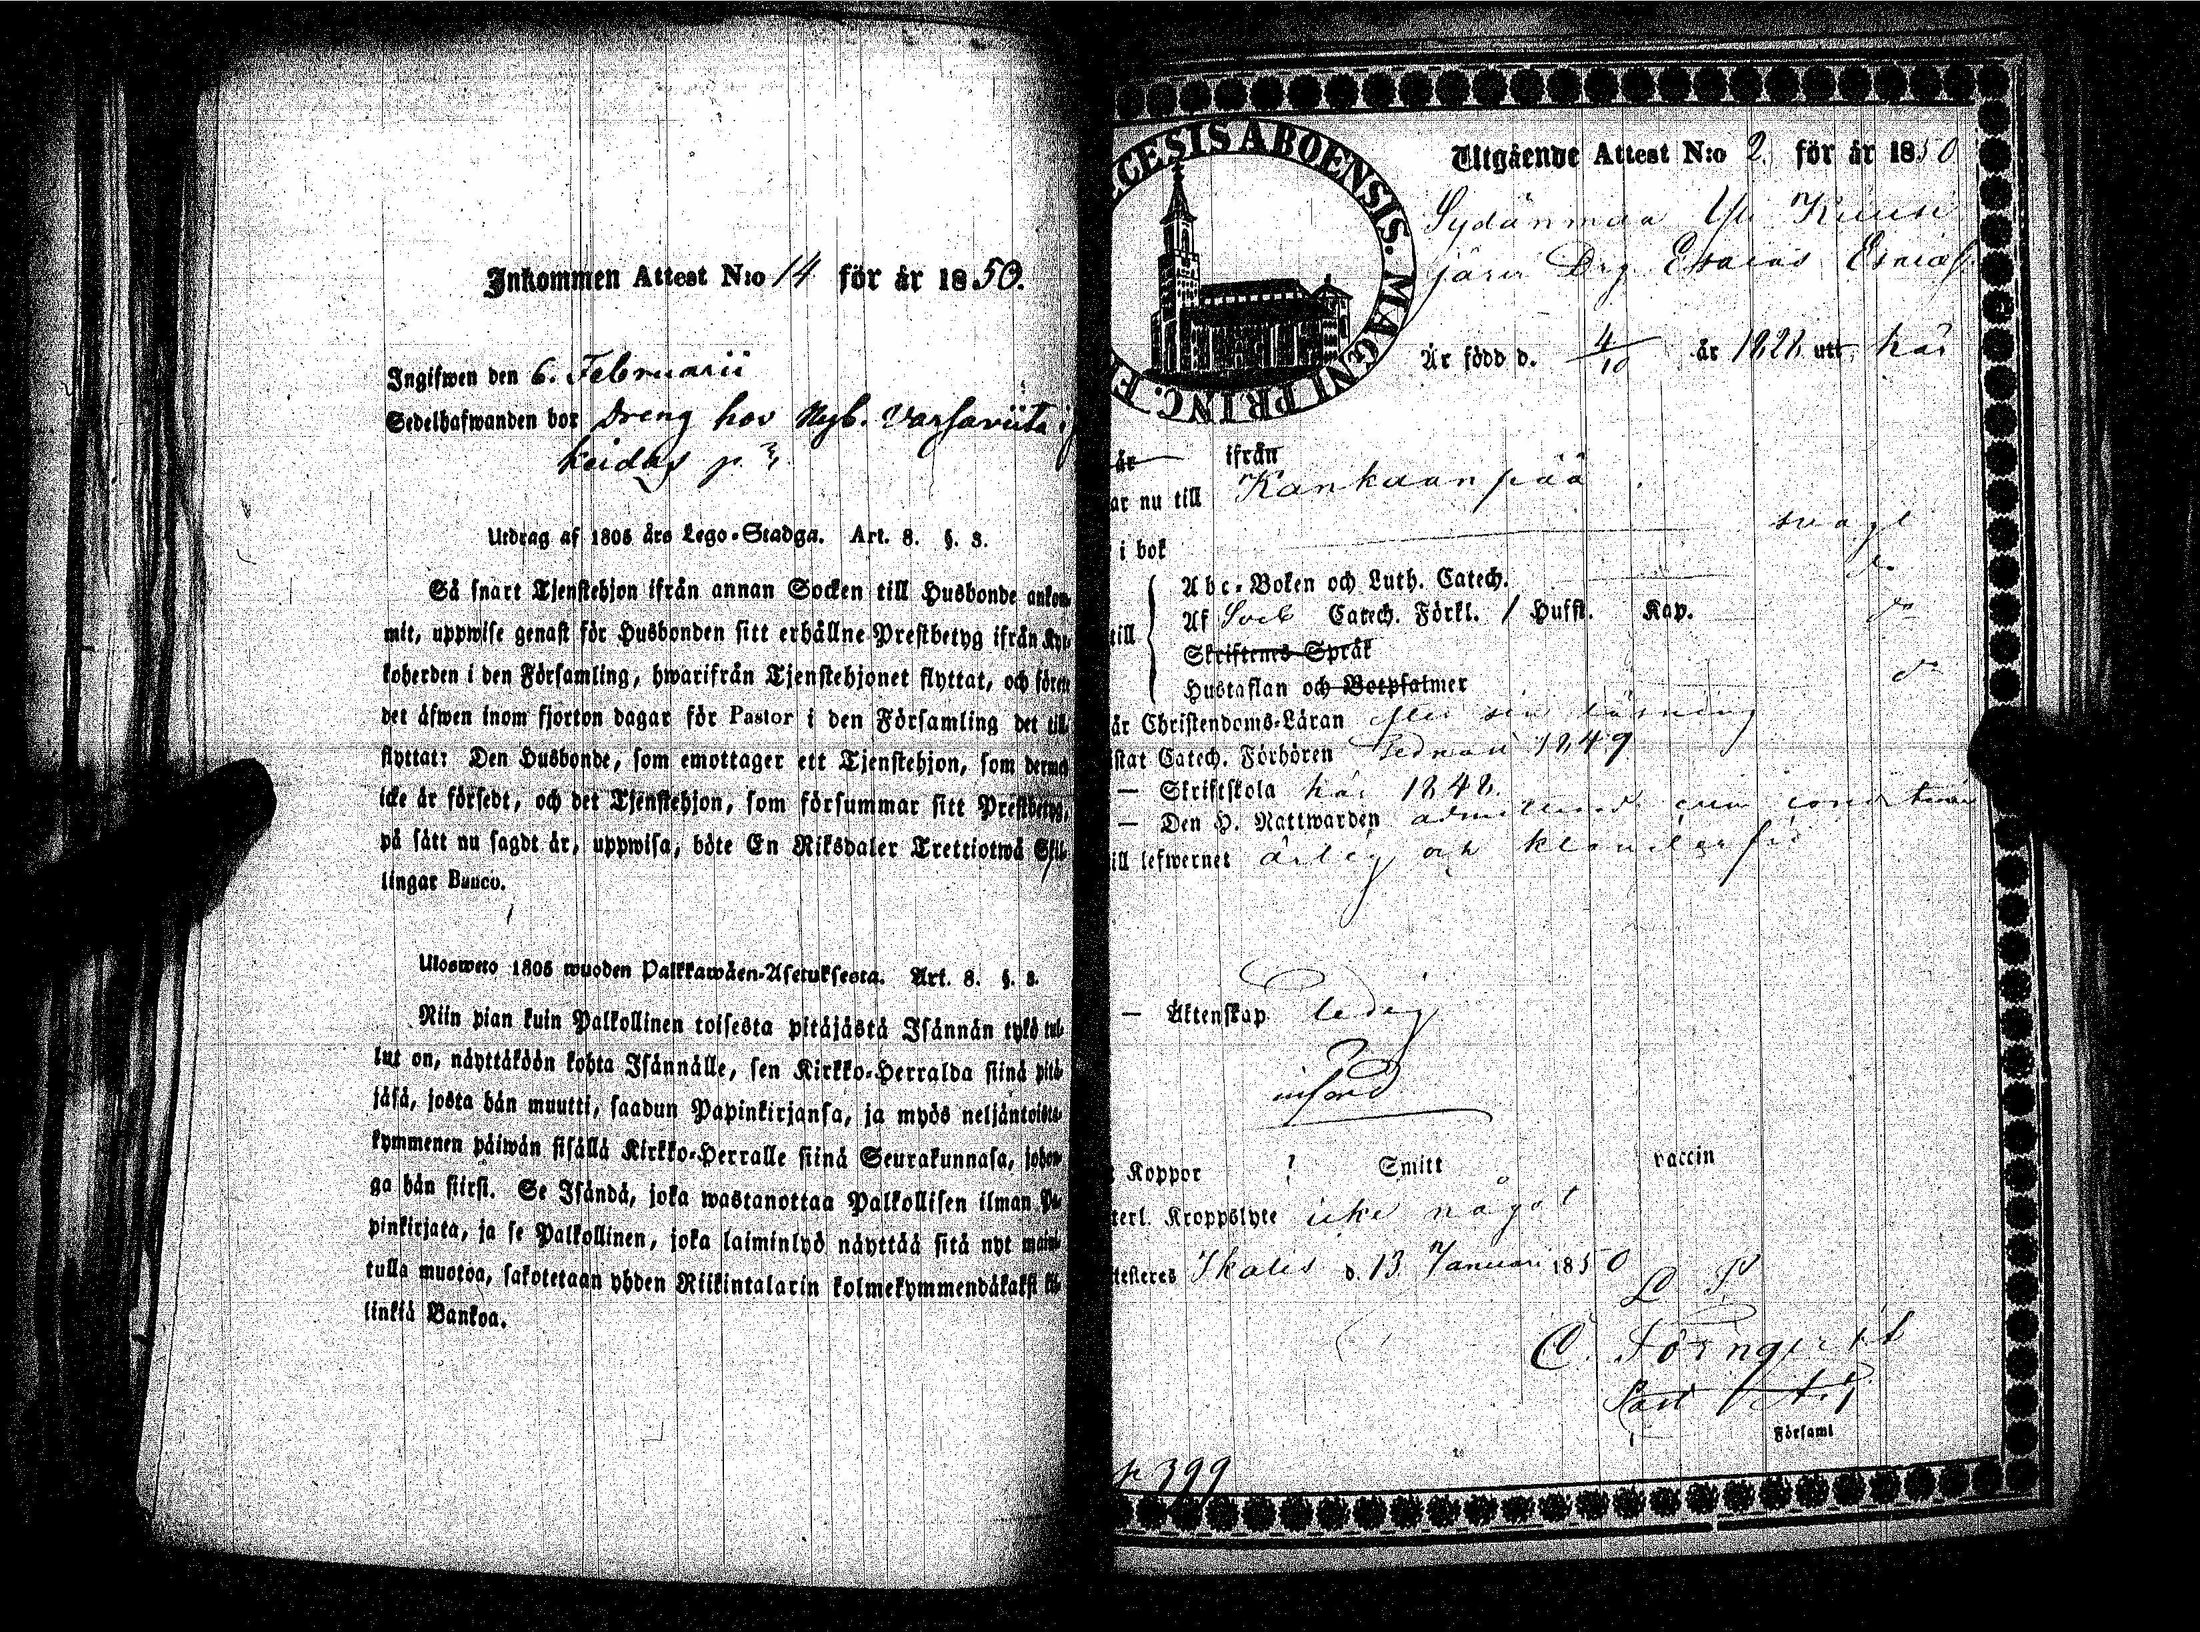 Inkommen Attest N:o 14 för år 1850.
Ingifwen den 6. Februarii
Sedelhafwanden bor Dreng hos Nyb.
p.
Utdrag af 1805 års Lego-Stadga. Art. 8. §. 3.
Så snart Tjenstehjon ifrån annan Socken till Husbonde ankom-
mit, uppwise genast för Husbonden sitt erhållne Prestbetyg ifrån Kyr-
koherden i den Församling, hwarifrån Tjenstehjonet flyttat, och förete
det äfwen inom fjorton dagar för Pastor i den Församling det till-
flyttat: Den Husbonde, som emottager ett Tjenstehjon, som dermed
icke är försedt, och det Tjenstehjon, som försummar sitt Prestbetyg,
på sätt nu sagdt är, uppwisa, böte En Riksdaler Trettiotwå Skil-
lingar Banco.
Ulosweto 1805 wuoden Palkkawäen-Asetuksesta. Art. 8. §. 3.
Niin pian kuin Palkollinen toisesta pitäjästä Isännän tykö tul-
lut on, näyttäköön kohta Isännälle, sen Kirkko-Herralda siinä pitä-
jäsä, josta hän muutti, saadun Papinkirjansa, ja myös neljäntoista-
kymmenen päiwän sisällä Kirkko-Herralle siinä Seurakunnasa, johon-
ga hän siirsi. Se Isändä, joka wastanottaa Palkollisen ilman Pa-
pinkirjata, ja se Palkollinen, joka laiminlyö näyttää sitä nyt maini-
tulla muotoa, sakotetaan yhden Riikintalarin kolmekymmendäkaksi kil-
linkiä Bankoa.
ECESIS ABOENSIS. MAGNI PRINC. F
Utgående Attest N:o 2. för år 1850
Sydänmaa Yli Kuusi
järvi Drg Esaias
Är född d. 4/10 år 1828 uti här
är ifrån
ar nu till Kankaanpää
i bok svagt
Abc-Boken och Luth. Catech. do
till Af Sveb Catech. Förkl. / Huffst. Kap. do
Skriftenes Språk
Hustaflan och Botpsalmer do
är Christendoms-Läran efter sin läsning
istat Catech. Förhören sednast 1849
— Skriftskola här 1848.
— Den H. Nattwarden admitterad cum
ill lefwernet ärlig och klanderfri
— Äktenskap ledig
införd
Koppor ? Smitt vaccin
terl. Kroppslyte icke något
testeres Ikalis d. 13. Januari 1850
L. S.
C. Törnqvist
Församl
p. 399